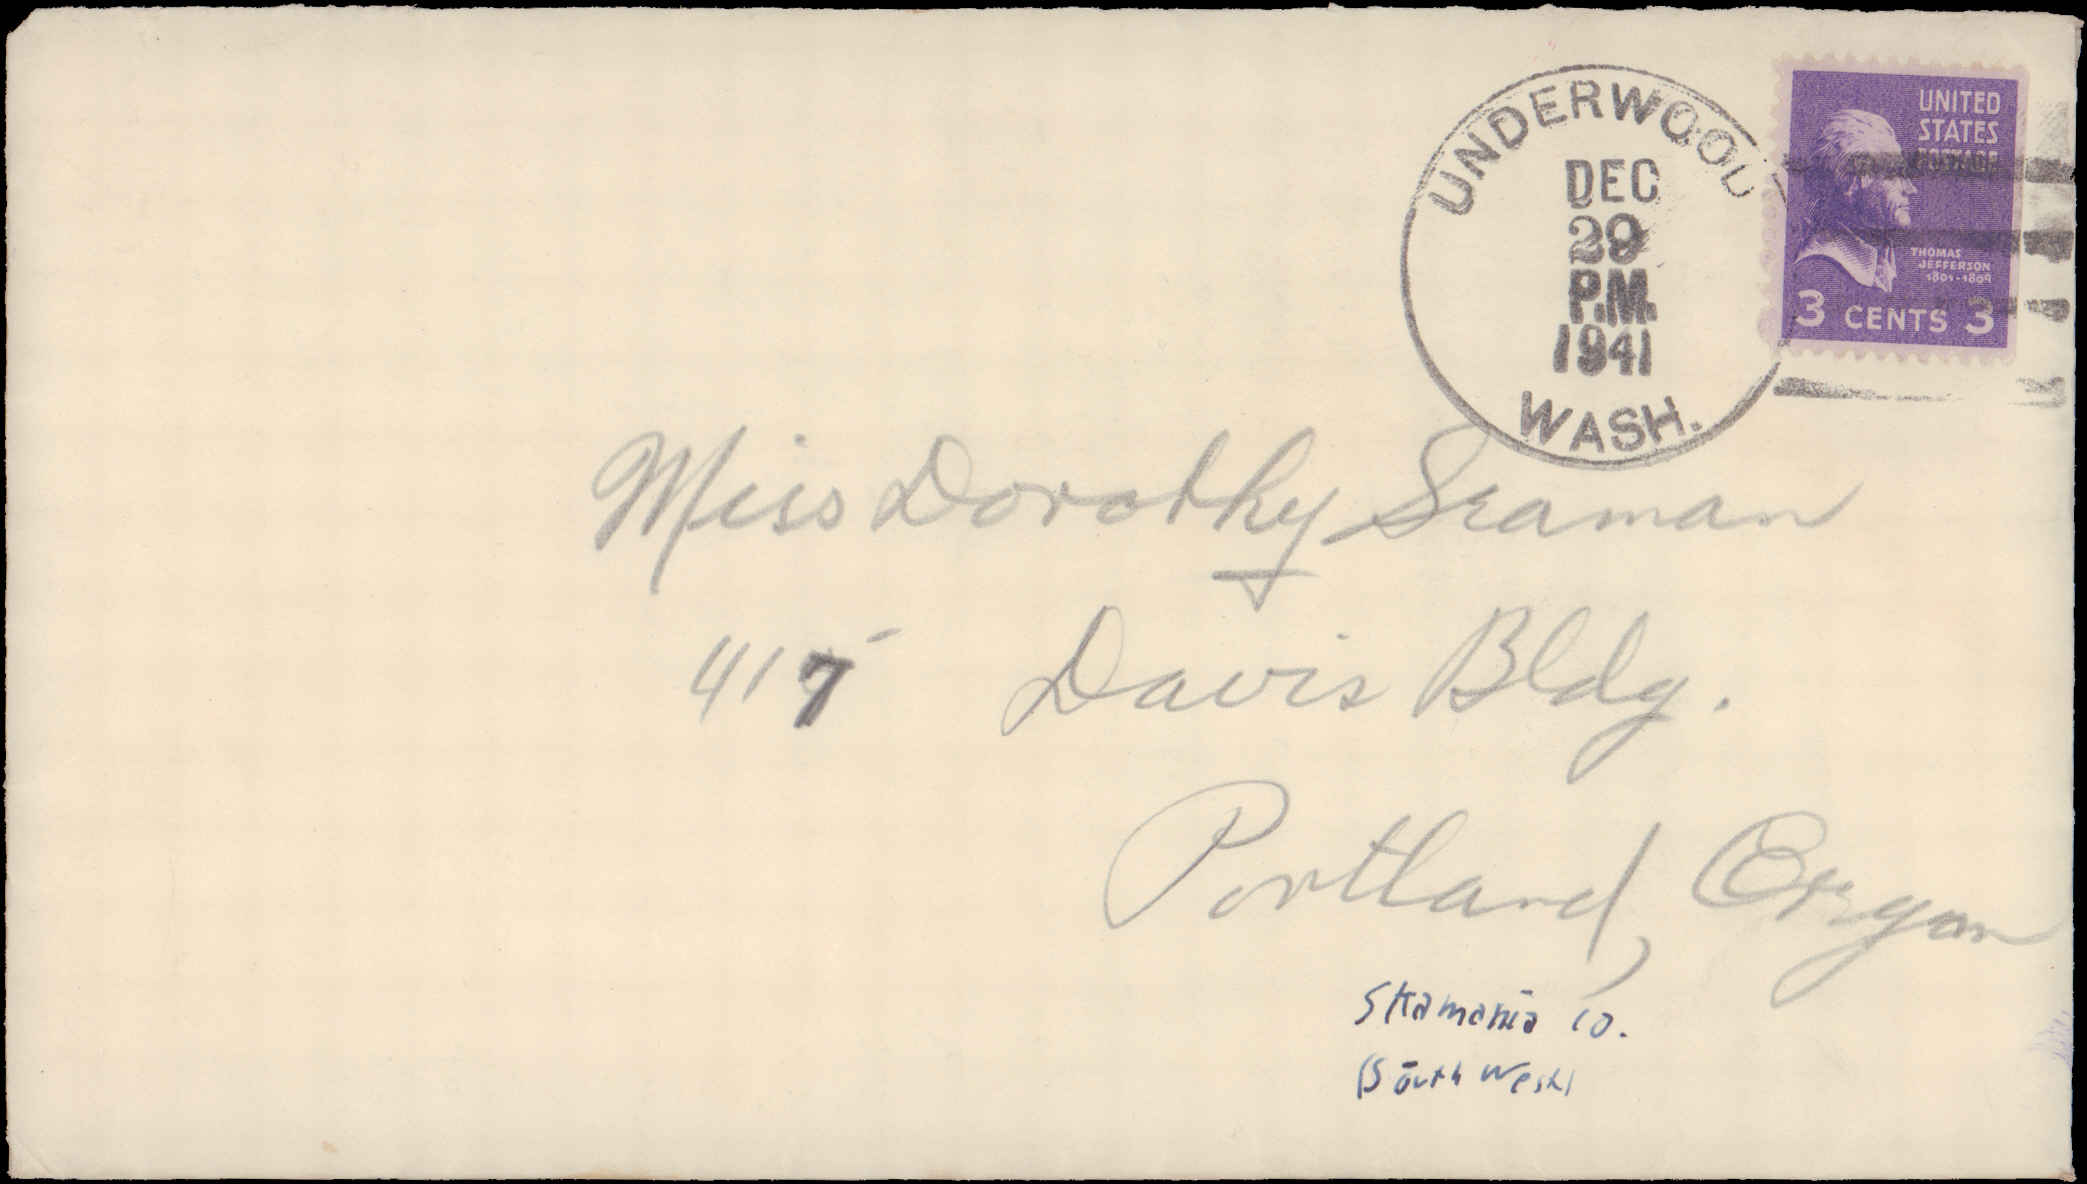 UNDERWOOD
DEC
29
P.M.
1941
WASH.
UNITED
STATES
POSTAGE
THOMAS
JEFFERSON
1801-1809
3 CENTS 3
Miss Dorothy Seaman
417 Davis Bldg.
Portland, Oregon
Skamania Co.
(South West)